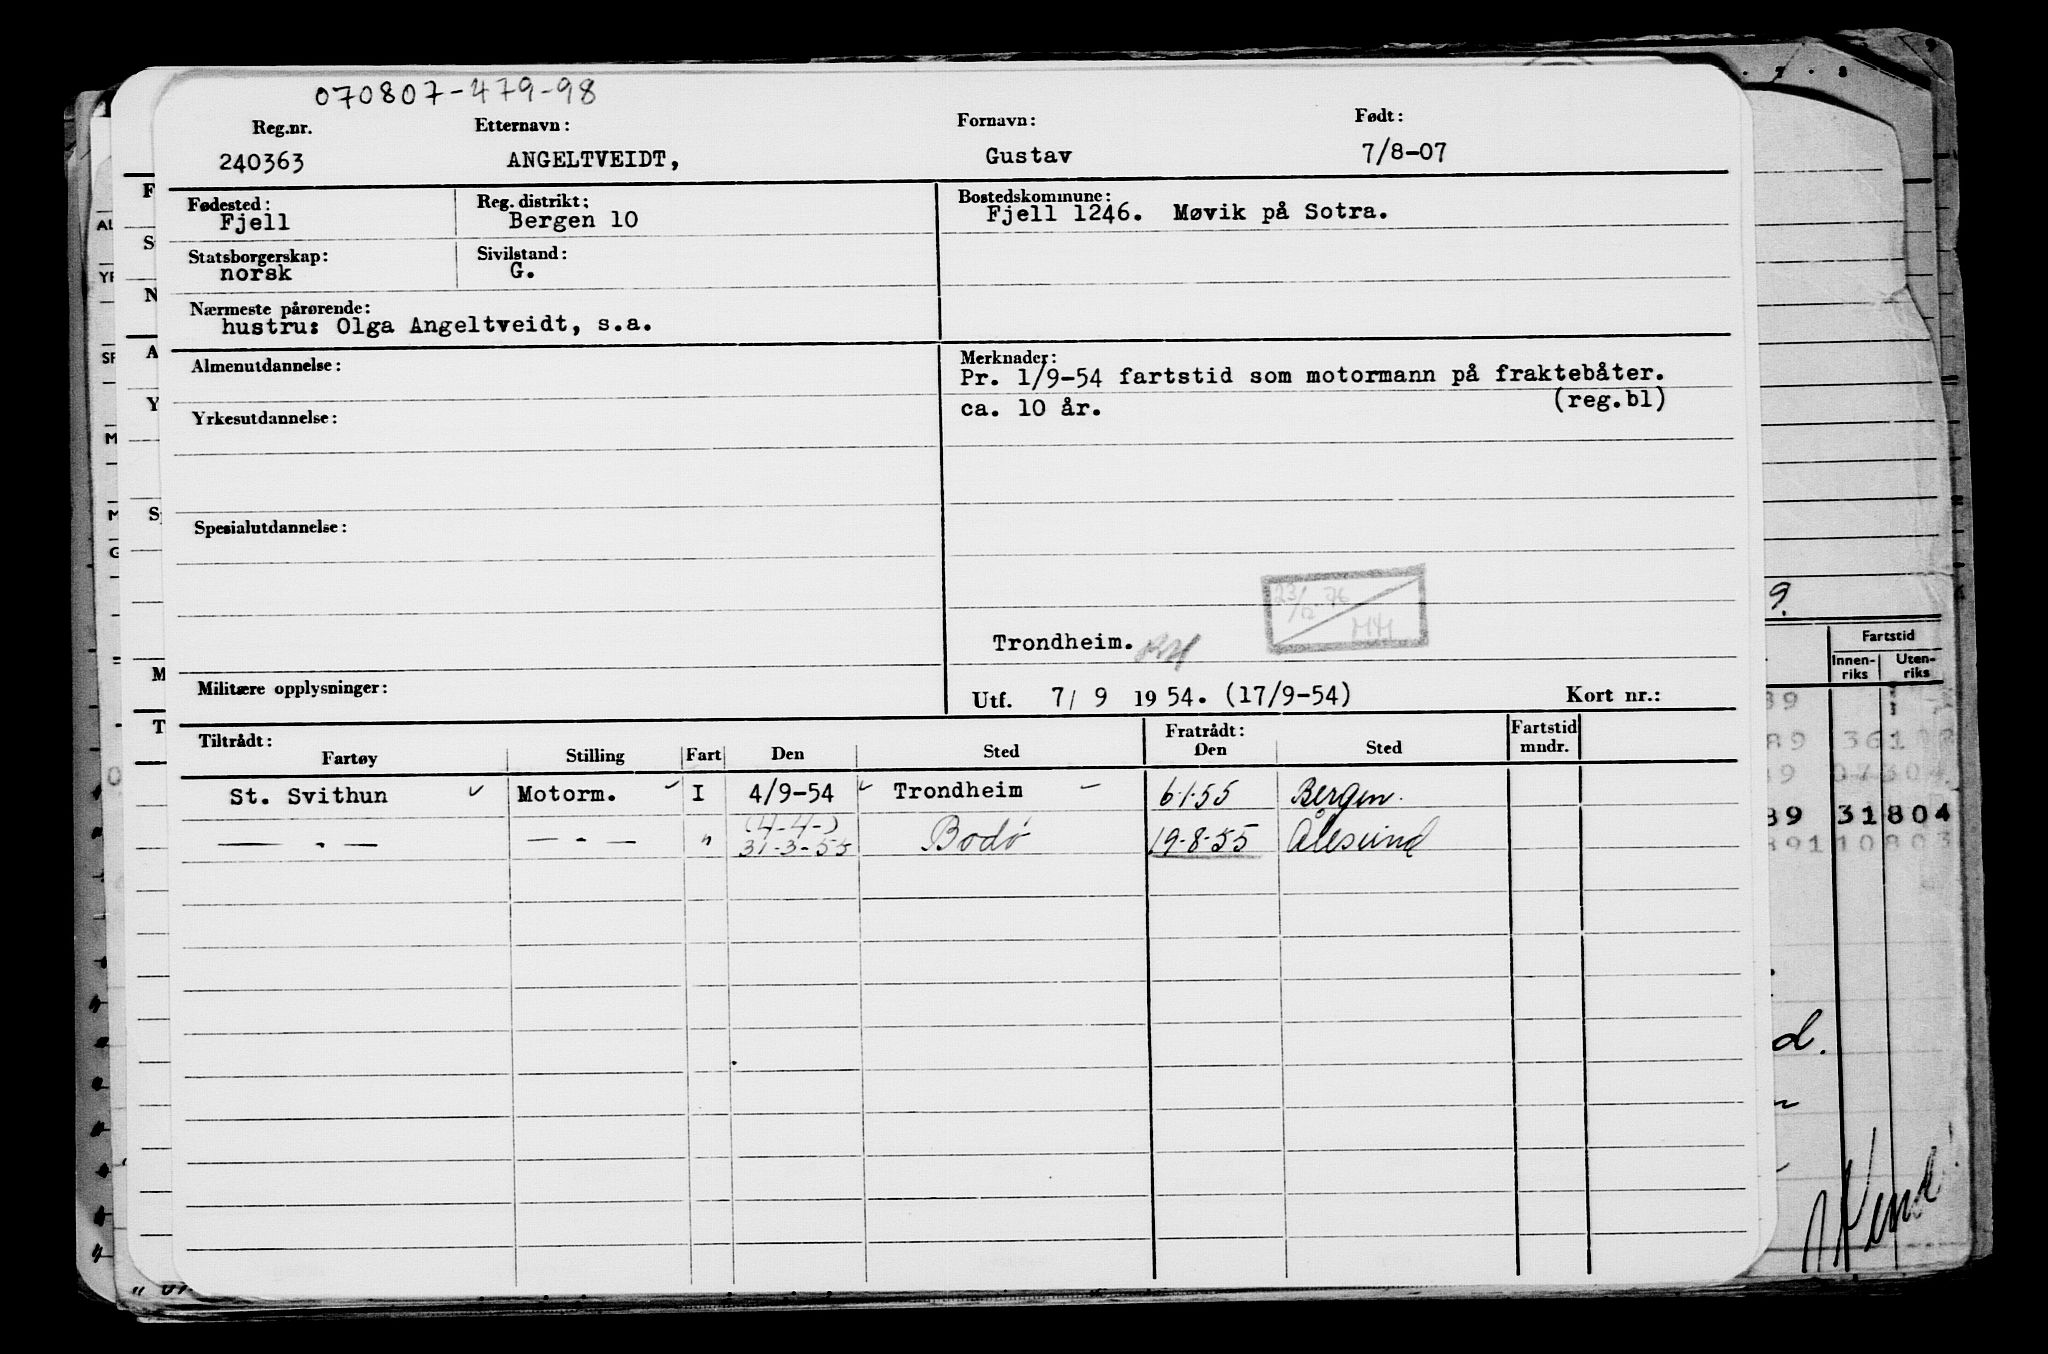 070807-479-98
Reg.nr. Etternavn: Fornavn: Født:
240363 ANGELTVEIDT, Gustav 7/8-07
Fødested: Reg. distrikt: Bostedskommune:
Fjell Bergen 10 Fjell 1246. Møvik på Sotra.
Statsborgerskap: Sivilstand:
norsk G.
Nærmeste pårørende:
hustru: Olga Angeltveidt, s.a.
Almenutdannelse: Merknader:
Pr. 1/9-54 fartstid som motormann på fraktebåter.
ca. 10 år. (reg.bl)
Yrkesutdannelse:
Spesialutdannelse:
23/12 76
HH
Trondheim.
Militære opplysninger: Utf. 7/ 9 19 54. (17/9-54) Kort nr.:
Tiltrådt: Fratrådt: Fartstid
Fartøy Stilling Fart Den Sted Den Sted mndr.
St. Svithun Motorm. I 4/9-54 Trondheim 6.1.55 Bergen.
(4-4-)
— " — — " — " 31-3-55 Bodø 19-8-55 Ålesund
9.
Fartstid
Innen- Uten-
riks riks
39
89 36
39 07304
39 31804
89110803
d.